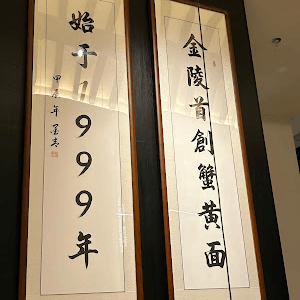 金陵首創蟹黄面
始于1999年
甲辰年